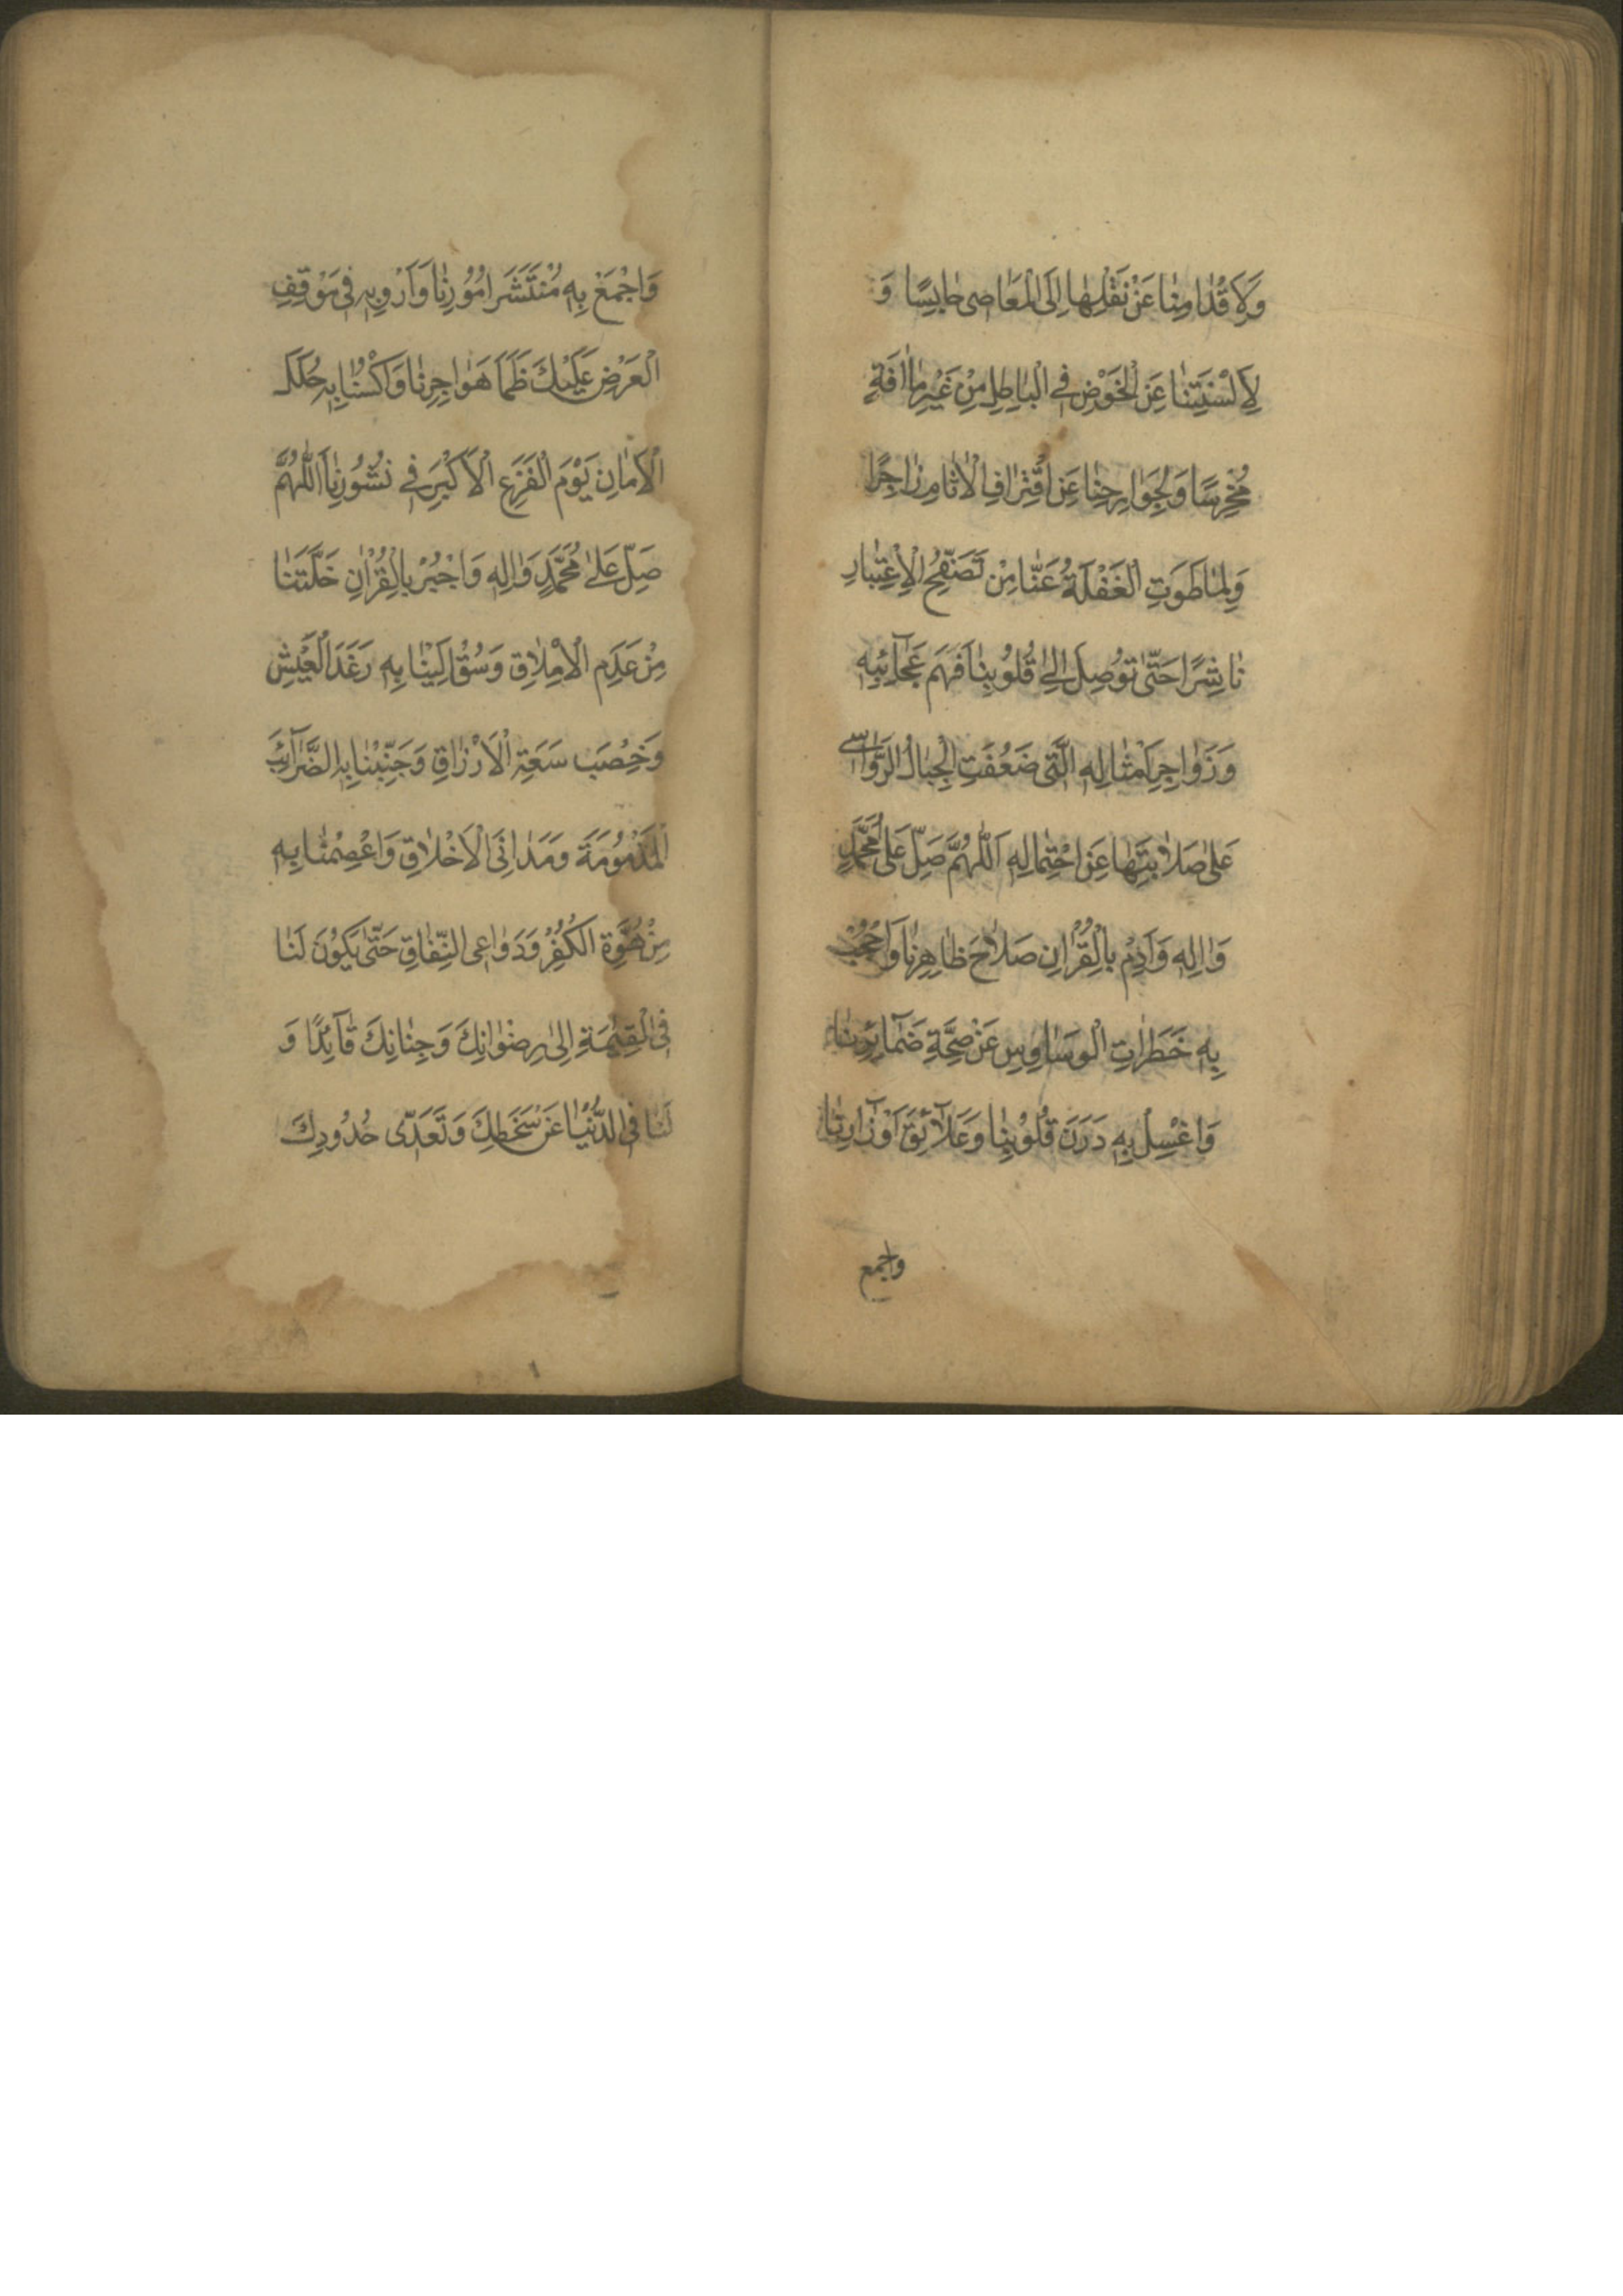 وَلِاَقْدٰامِنٰا عَنْ نَقْلِهٰا اِلَى الْمَعٰاصِى حٰابِسًا وَ
لِاَلْسِنَتِنٰا عَنِ الْخَوْضِ فِى الْبٰاطِلِ مِنْ غَيْرِ مٰا اٰفَةٍ
مُخْرِسًا وَلِجَوٰارِحِنٰا عَنِ اقْتِرٰافِ الْاٰثٰامِ زٰاجِرًا
وَلِمٰا طَوَتِ الْغَفْلَةُ عَنّٰا مِنْ تَصَفُّحِ الْاِعْتِبٰارِ
نٰاشِرًا حَتّٰى تُوصِلَ اِلىٰ قُلُوبِنٰا فَهْمَ عَجٰآئِبِهِ
وَزَوٰاجِرَ اَمْثٰالِهِ الَّتِى ضَعُفَتِ الْجِبٰالُ الرَّوٰاسِى
عَلىٰ صَلٰابَتِهٰا عَنِ احْتِمٰالِهِ اَللّٰهُمَّ صَلِّ عَلىٰ مُحَمَّدٍ
وَاٰلِهِ وَاَدِمْ بِالْقُرْاٰنِ صَلٰاحَ ظٰاهِرِنٰا وَاحْجُبْ
بِهِ خَطَرٰاتِ الْوَسٰاوِسِ عَنْ صِحَّةِ ضَمٰآئِرِنٰا
وَاغْسِلْ بِهِ دَرَنَ قُلُوبِنٰا وَعَلٰآئِقَ اَوْزٰارِنٰا
واجمع
وَاجْمَعْ بِهِ مُنْتَشَرَ اُمُورِنٰا وَاَرْوِ بِهِ فِى مَوْقِفِ
الْعَرْضِ عَلَيْكَ ظَمَاَ هَوٰاجِرِنٰا وَاكْسُنٰا بِهِ حُلَلَ
الْاَمٰانِ يَوْمَ الْفَزَعِ الْاَكْبَرِ فِى نُشُورِنٰا اَللّٰهُمَّ
صَلِّ عَلىٰ مُحَمَّدٍ وَاٰلِهِ وَاجْبُرْ بِالْقُرْاٰنِ خَلَّتَنٰا
مِنْ عَدَمِ الْاِمْلٰاقِ وَسُقْ اِلَيْنٰا بِهِ رَغَدَ الْعَيْشِ
وَخِصْبَ سَعَةِ الْاَرْزٰاقِ وَجَنِّبْنٰا بِهِ الضَّرٰآئِبَ
الْمَذْمُومَةَ وَمَدٰانِىَ الْاَخْلٰاقِ وَاعْصِمْنٰا بِهِ
مِنْ هُوَّةِ الْكُفْرِ وَدَوٰاعِى النِّفٰاقِ حَتّٰى يَكُونَ لَنٰا
فِى الْقِيٰمَةِ اِلىٰ رِضْوٰانِكَ وَجِنٰانِكَ قٰآئِدًا وَ
لَنٰا فِى الدُّنْيٰا عَنْ سَخَطِكَ وَتَعَدِّى حُدُودِكَ